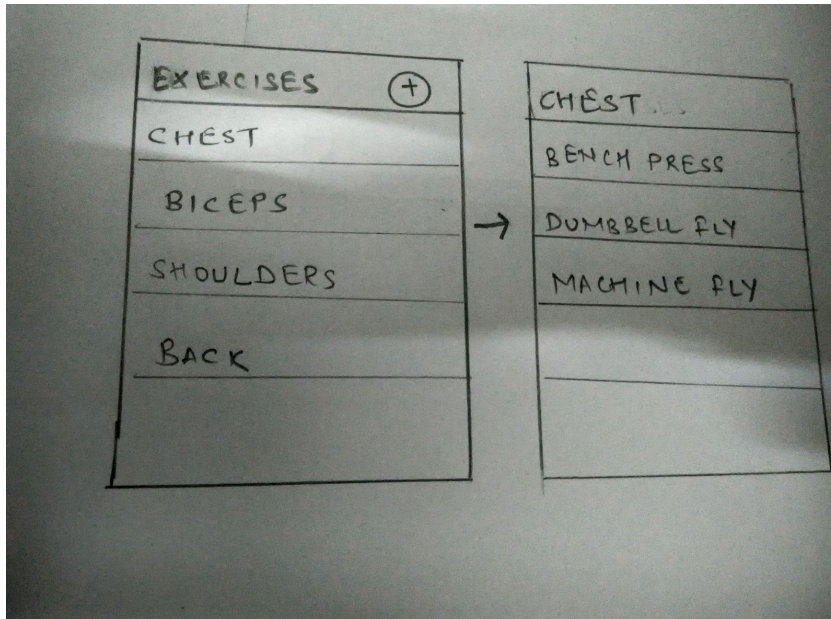 EXERCISES +
CHEST
BICEPS
SHOULDERS
BACK
→
CHEST...
BENCH PRESS
DUMBBELL FLY
MACHINE FLY